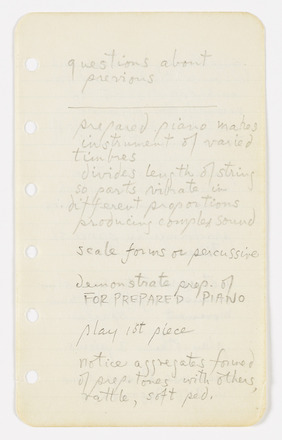 questions about
previous
prepared piano makes
instrument of varied
timbres
divides length of string
so parts vibrate in
different proportions
producing complex sound
scale forms or percussive
demonstrate prep. of
FOR PREPARED PIANO
play 1st piece
notice aggregates formed
of prep. tones with others,
rattle, soft ped.